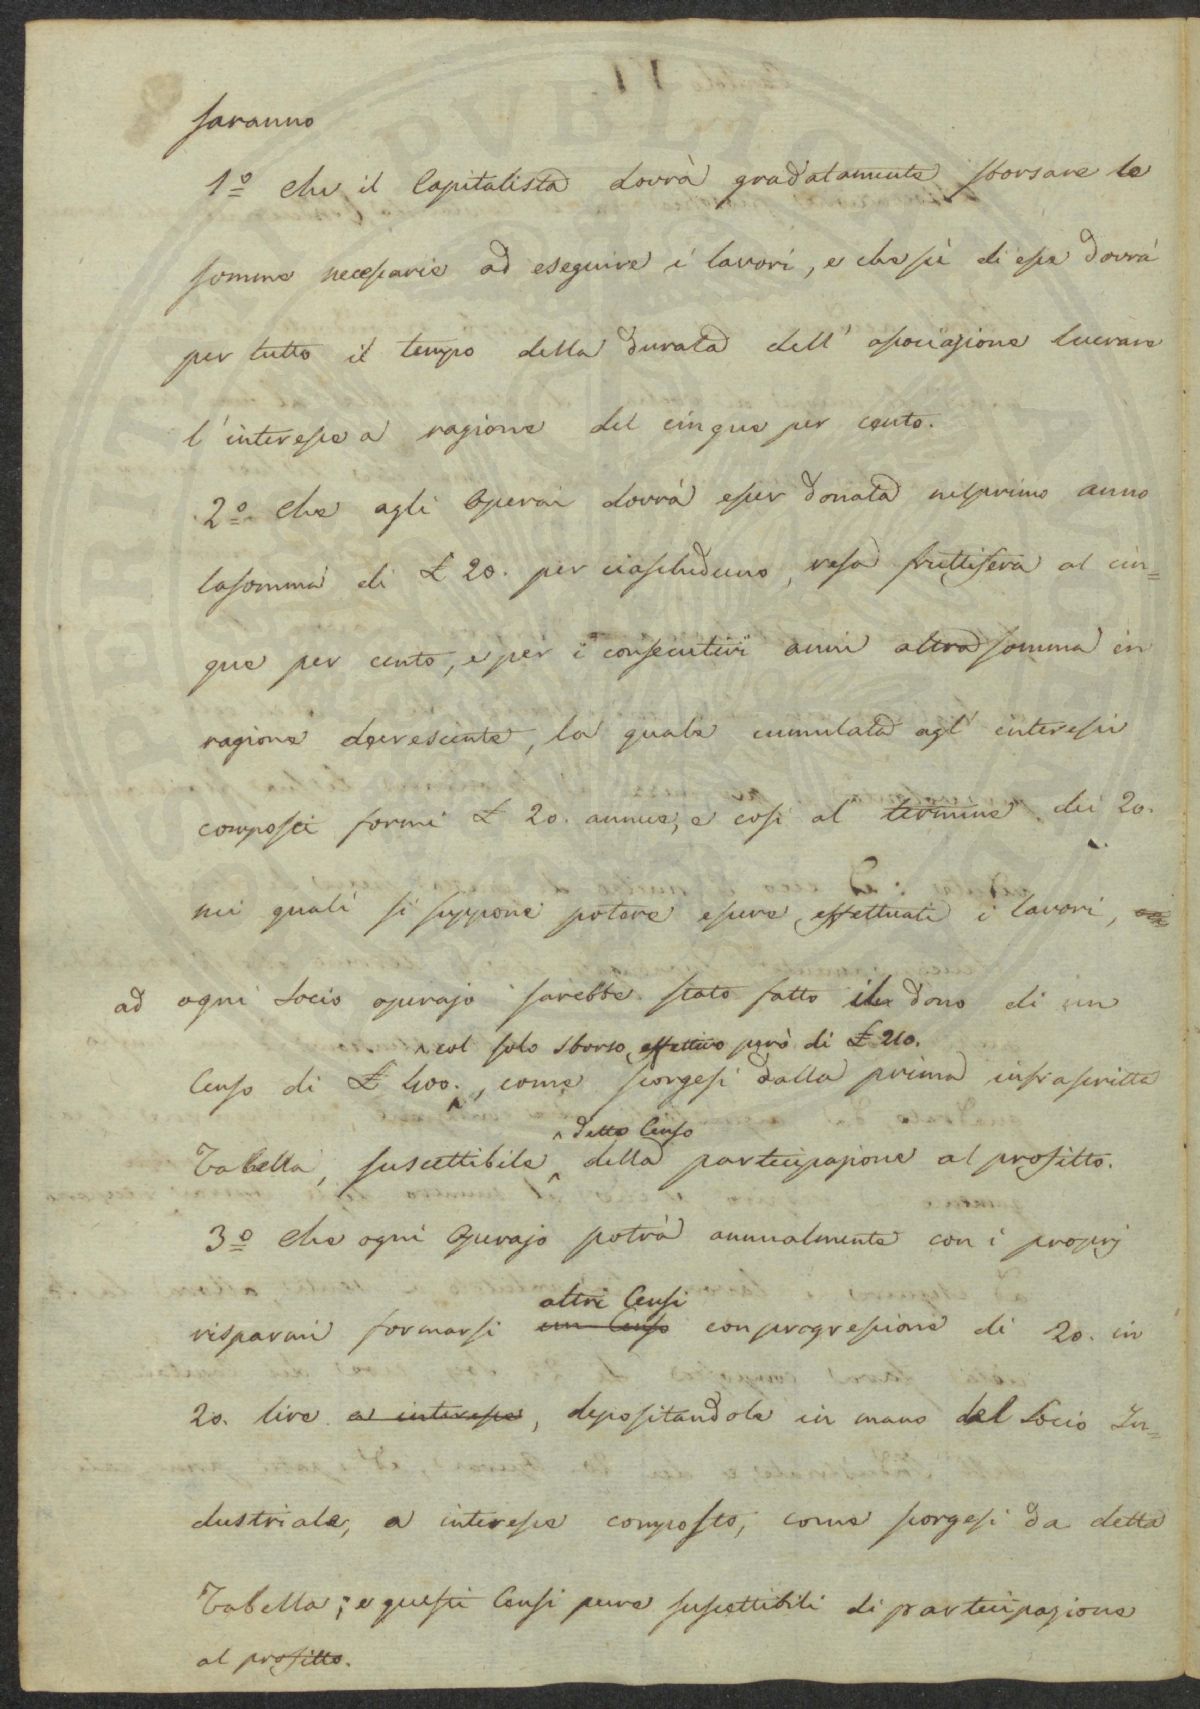 saranno
1º che il Capitalista dovrà gradatamente sborsare le
somme necessarie ad eseguire i lavori, e che su di esse dovrà
per tutto il tempo della durata dell' associazione lucrare
l'interesse a ragione del cinque per cento.
2º che agli Operai dovrà esser donata nel primo anno
la somma di £ 20. per ciascheduno, resa fruttifera al cin=
que per cento, e per i consecutivi anni altra somma in
ragione decrescente, la quale cumulata agl' interessi
composti formi £ 20. annue, e così al termine dei 20.
nei quali si suppone potere essere effettuati i lavori,
ad ogni Socio operajo sarebbe stato fatto il dono di un
col solo sborso effettivo però di £ 210.
Censo di £ 400., come scorgesi dalla prima infrascritta
detto Censo
Tabella, suscettibile della partecipazione al profitto.
3º che ogni Operajo potrà annualmente con i proprj
altri Censi
risparmi formarsi un Censo con progressione di 20. in
20. lire a interesse, depositandole in mano del Socio In=
dustriale, a interesse composto, come scorgesi da detta
Tabella; e questi Censi pure suscettibili di partecipazione
al profitto.